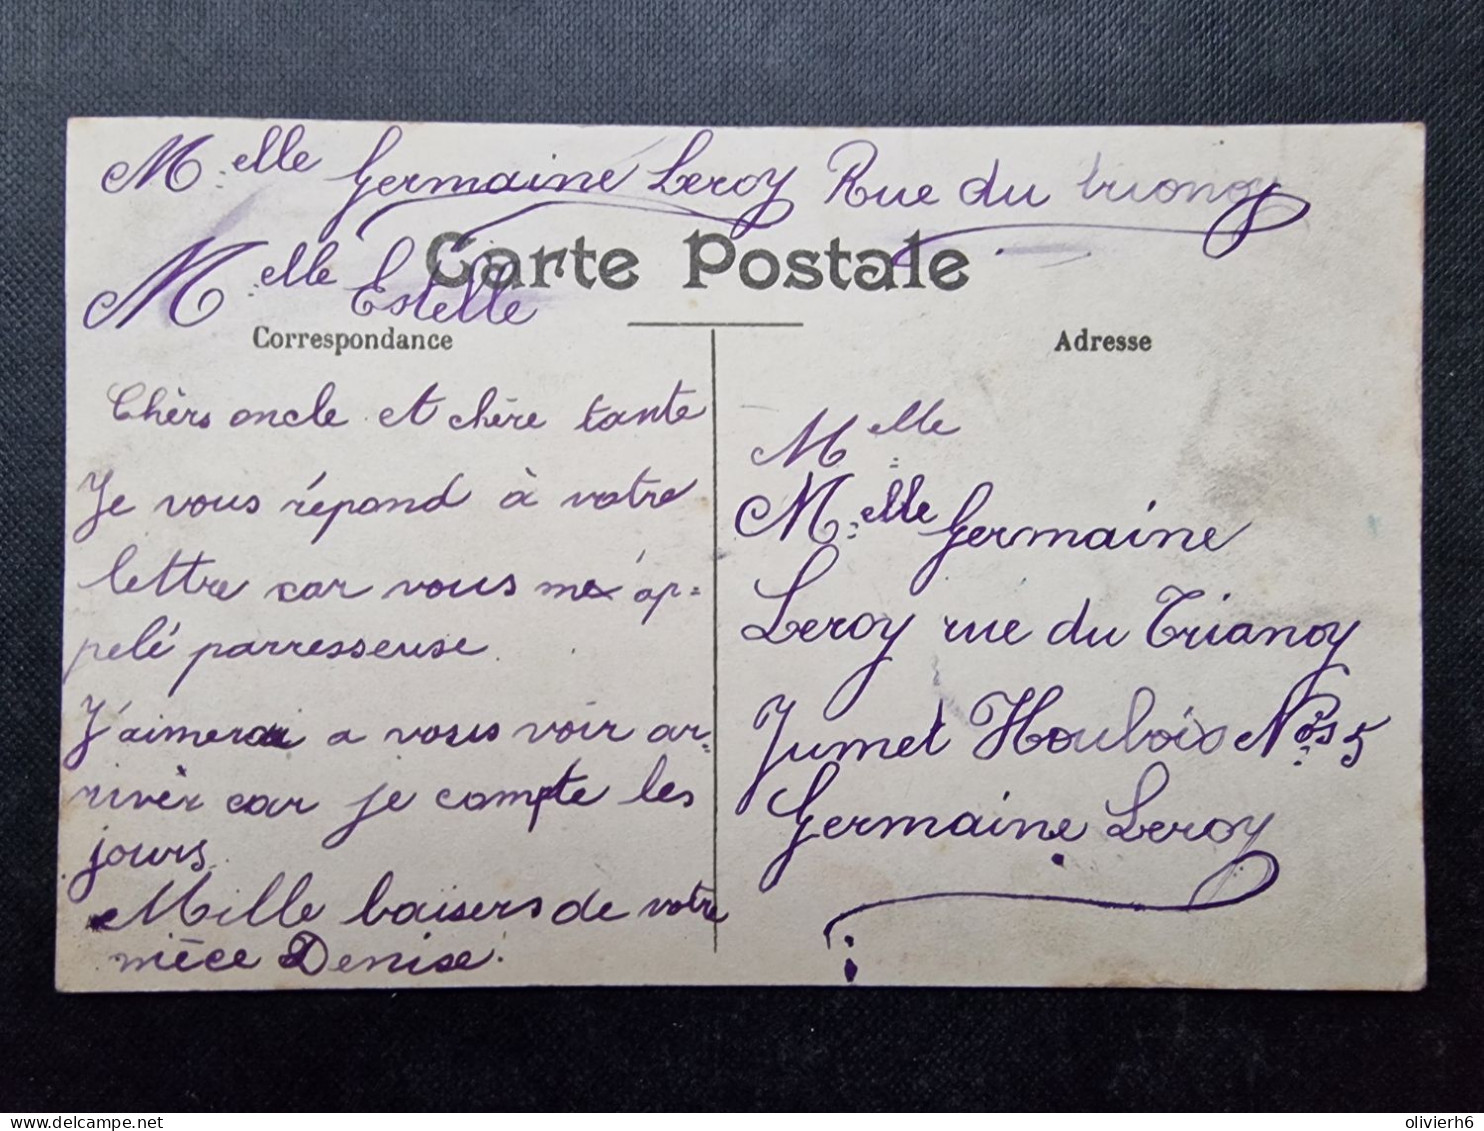 Melle Germaine Leroy Rue du trionoy
Melle Estelle
Carte Postale
Correspondance
Chèrs oncle et chère tante
Je vous répond à votre
lettre car vous m'ap=
pelé parresseuse
J'aimerai a vous voir ar=
rivér car je compte les
jours.
Mille baisers de votre
nièce Denise.
Adresse
Melle
Melle Germaine
Leroy rue du Trianoy
Jumet Houbois Nos 5
Germaine Leroy
olivierh6